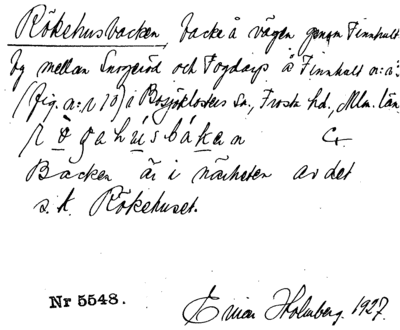 Rökehusbacken, backe å vägen genom Finnhult
by mellan Snogeröd och Fogdarp å Finnhult o: a:
(fig. a: 1 70) i Bosjökloster Sn, Frosta hd., Mlm. län
rögahúsbákan
Backen är i närheten av det
s.k. Rökehuset.
Nr 5548. Einar Holmberg. 1927.